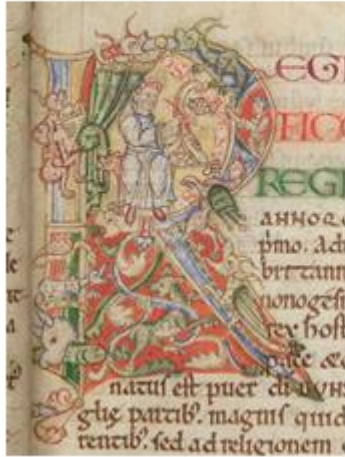 REG
FICO
REG
ANNO Q
p̄mo. Ad
brittann
nonoges
rex host
pace
natus est puer
glie partib'. magnis quid
rentib'. sed ad religionem